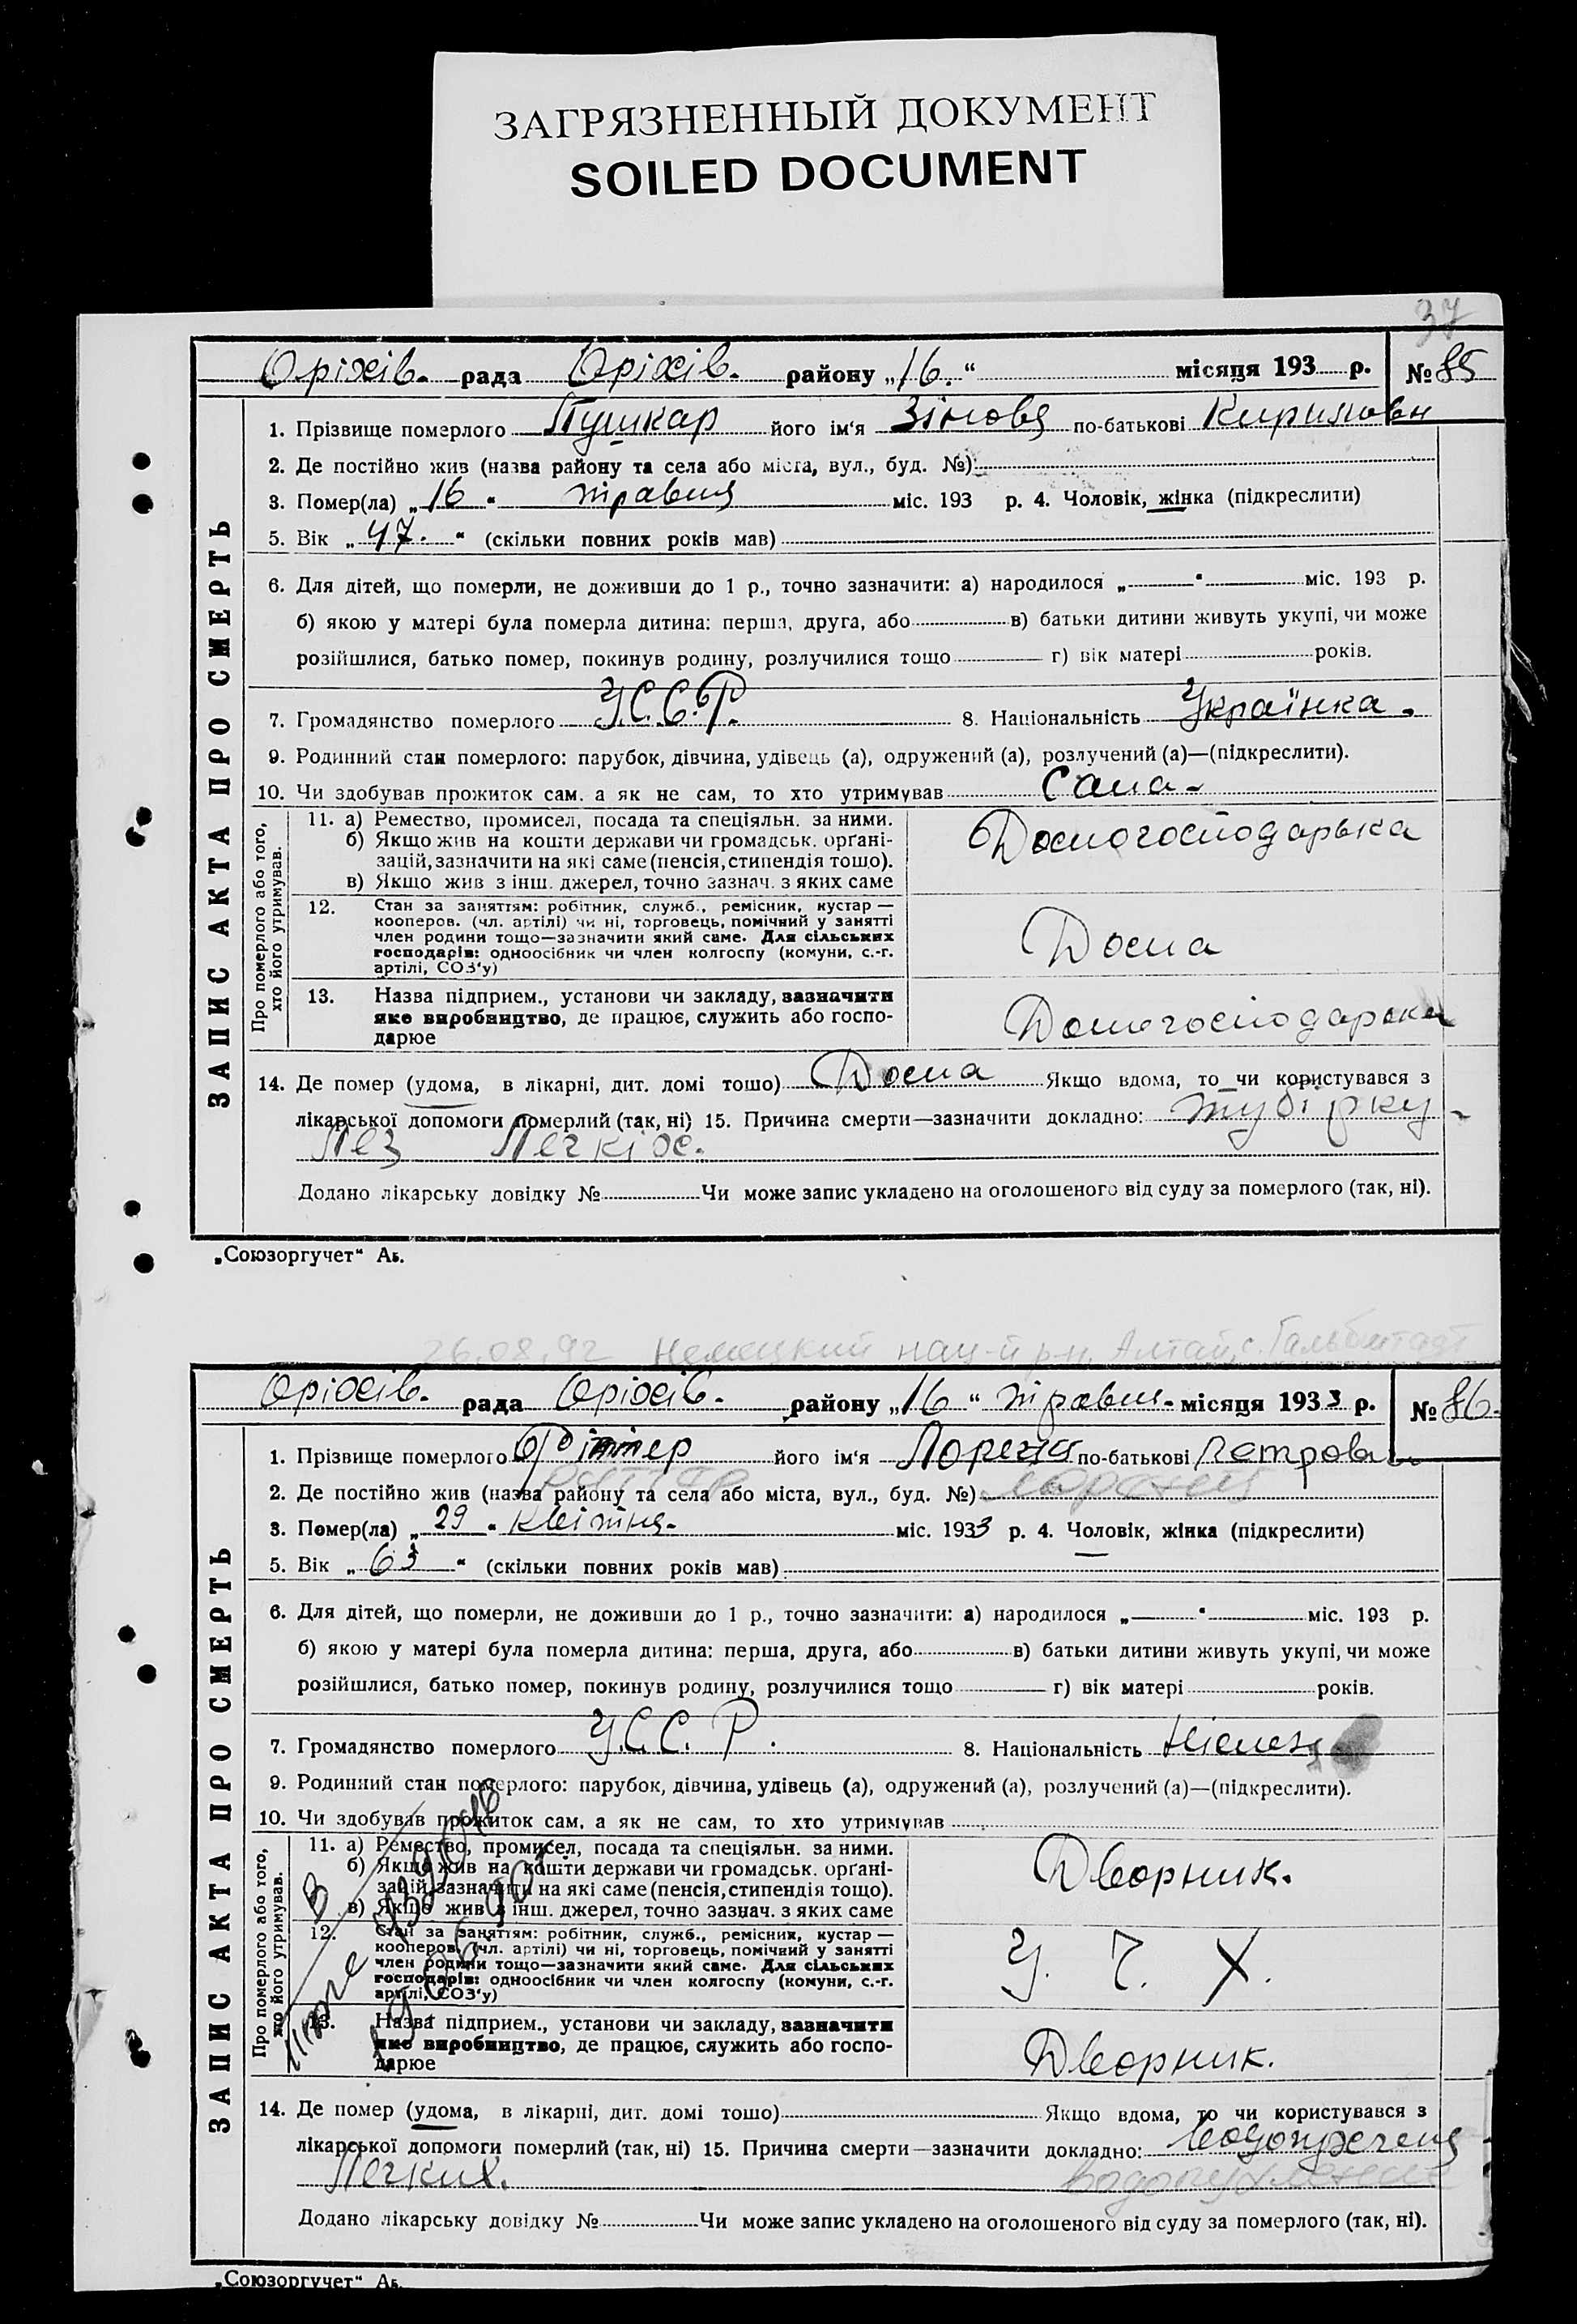 ЗАГРЯЗНЕННЫЙ ДОКУМЕНТ
SOILED DOCUMENT
37
Оріхів. рада Оріхів. району „16.“ місяця 193 р. № 85
1. Прізвище померлого Пушкар його ім'я Зіновія по-батькові Кирилівн
2. Де постійно жив (назва району та села або міста, вул., буд. №):
3. Помер(ла) „16“ травня міс. 193 р. 4. Чоловік, жінка (підкреслити)
5. Вік „47.“ (скільки повних років мав)
6. Для дітей, що померли, не доживши до 1 р., точно зазначити: а) народилося „ “ міс. 193 р.
б) якою у матері була померла дитина: перша, друга, або в) батьки дитини живуть укупі, чи може
розійшлися, батько помер, покинув родину, розлучилися тощо г) вік матері років.
7. Громадянство померлого У.С.С.Р. 8. Національність Українка.
9. Родинний стан померлого: парубок, дівчина, удівець (а), одружений (а), розлучений (а)—(підкреслити).
10. Чи здобував прожиток сам, а як не сам, то хто утримував Сама-
ЗАПИС АКТА ПРО СМЕРТЬ
Про померлого або того,
хто його утримував.
11. а) Ремество, промисел, посада та спеціяльн. за ними.
б) Якщо жив на кошти держави чи громадськ. орґані-
зацій, зазначити на які саме (пенсія, стипендія тощо).
в) Якщо жив з інш. джерел, точно зазнач. з яких саме
Домогосподарька
12. Стан за заняттям: робітник, служб., ремісник, кустар —
кооперов. (чл. артілі) чи ні, торговець, помічний у занятті
член родини тощо—зазначити який саме. Для сільських
господарів: одноосібник чи член колгоспу (комуни, с.-г.
артілі, СОЗ'у)
Дома
13. Назва підприєм., установи чи закладу, зазначити
яке виробництво, де працює, служить або госпо-
дарює
Домогосподарька
14. Де помер (удома, в лікарні, дит. домі тощо) Дома Якщо вдома, то чи користувався з
лікарської допомоги померлий (так, ні) 15. Причина смерти—зазначити докладно: тубірку-
лез Легкіх.
Додано лікарську довідку № Чи може запис укладено на оголошеного від суду за померлого (так, ні).
„Союзоргучет“ Аб.
26.08.92 Немецкий нац-й р-н, Алтай, с. Гальбштадт
Оріхів. рада Оріхів. району „16“ травня. місяця 1933 р. № 86.
1. Прізвище померлого Ріттер його ім'я Лоренц по-батькові Петрович
Риттер Лоренц
2. Де постійно жив (назва району та села або міста, вул., буд. №)
3. Помер(ла) „29“ квітня. міс. 1933 р. 4. Чоловік, жінка (підкреслити)
5. Вік „63“ (скільки повних років мав)
6. Для дітей, що померли, не доживши до 1 р., точно зазначити: а) народилося „ “ міс. 193 р.
б) якою у матері була померла дитина: перша, друга, або в) батьки дитини живуть укупі, чи може
розійшлися, батько помер, покинув родину, розлучилися тощо г) вік матері років.
7. Громадянство померлого У.С.С.Р. 8. Національність Німець
9. Родинний стан померлого: парубок, дівчина, удівець (а), одружений (а), розлучений (а)—(підкреслити).
10. Чи здобував прожиток сам, а як не сам, то хто утримував
ЗАПИС АКТА ПРО СМЕРТЬ
Про померлого або того,
хто його утримував.
11. а) Ремество, промисел, посада та спеціяльн. за ними.
б) Якщо жив на кошти держави чи громадськ. орґані-
зацій, зазначити на які саме (пенсія, стипендія тощо).
в) Якщо жив з інш. джерел, точно зазнач. з яких саме
Дворник.
12. Стан за заняттям: робітник, служб., ремісник, кустар —
кооперов. (чл. артілі) чи ні, торговець, помічний у занятті
член родини тощо—зазначити який саме. Для сільських
господарів: одноосібник чи член колгоспу (комуни, с.-г.
артілі, СОЗ'у)
У. Ч. Х.
13. Назва підприєм., установи чи закладу, зазначити
яке виробництво, де працює, служить або госпо-
дарює
Дворник.
14. Де помер (удома, в лікарні, дит. домі тощо) Якщо вдома, то чи користувався з
лікарської допомоги померлий (так, ні) 15. Причина смерти—зазначити докладно:
Легких.
Додано лікарську довідку № Чи може запис укладено на оголошеного від суду за померлого (так, ні).
„Союзоргучет“ Аб.